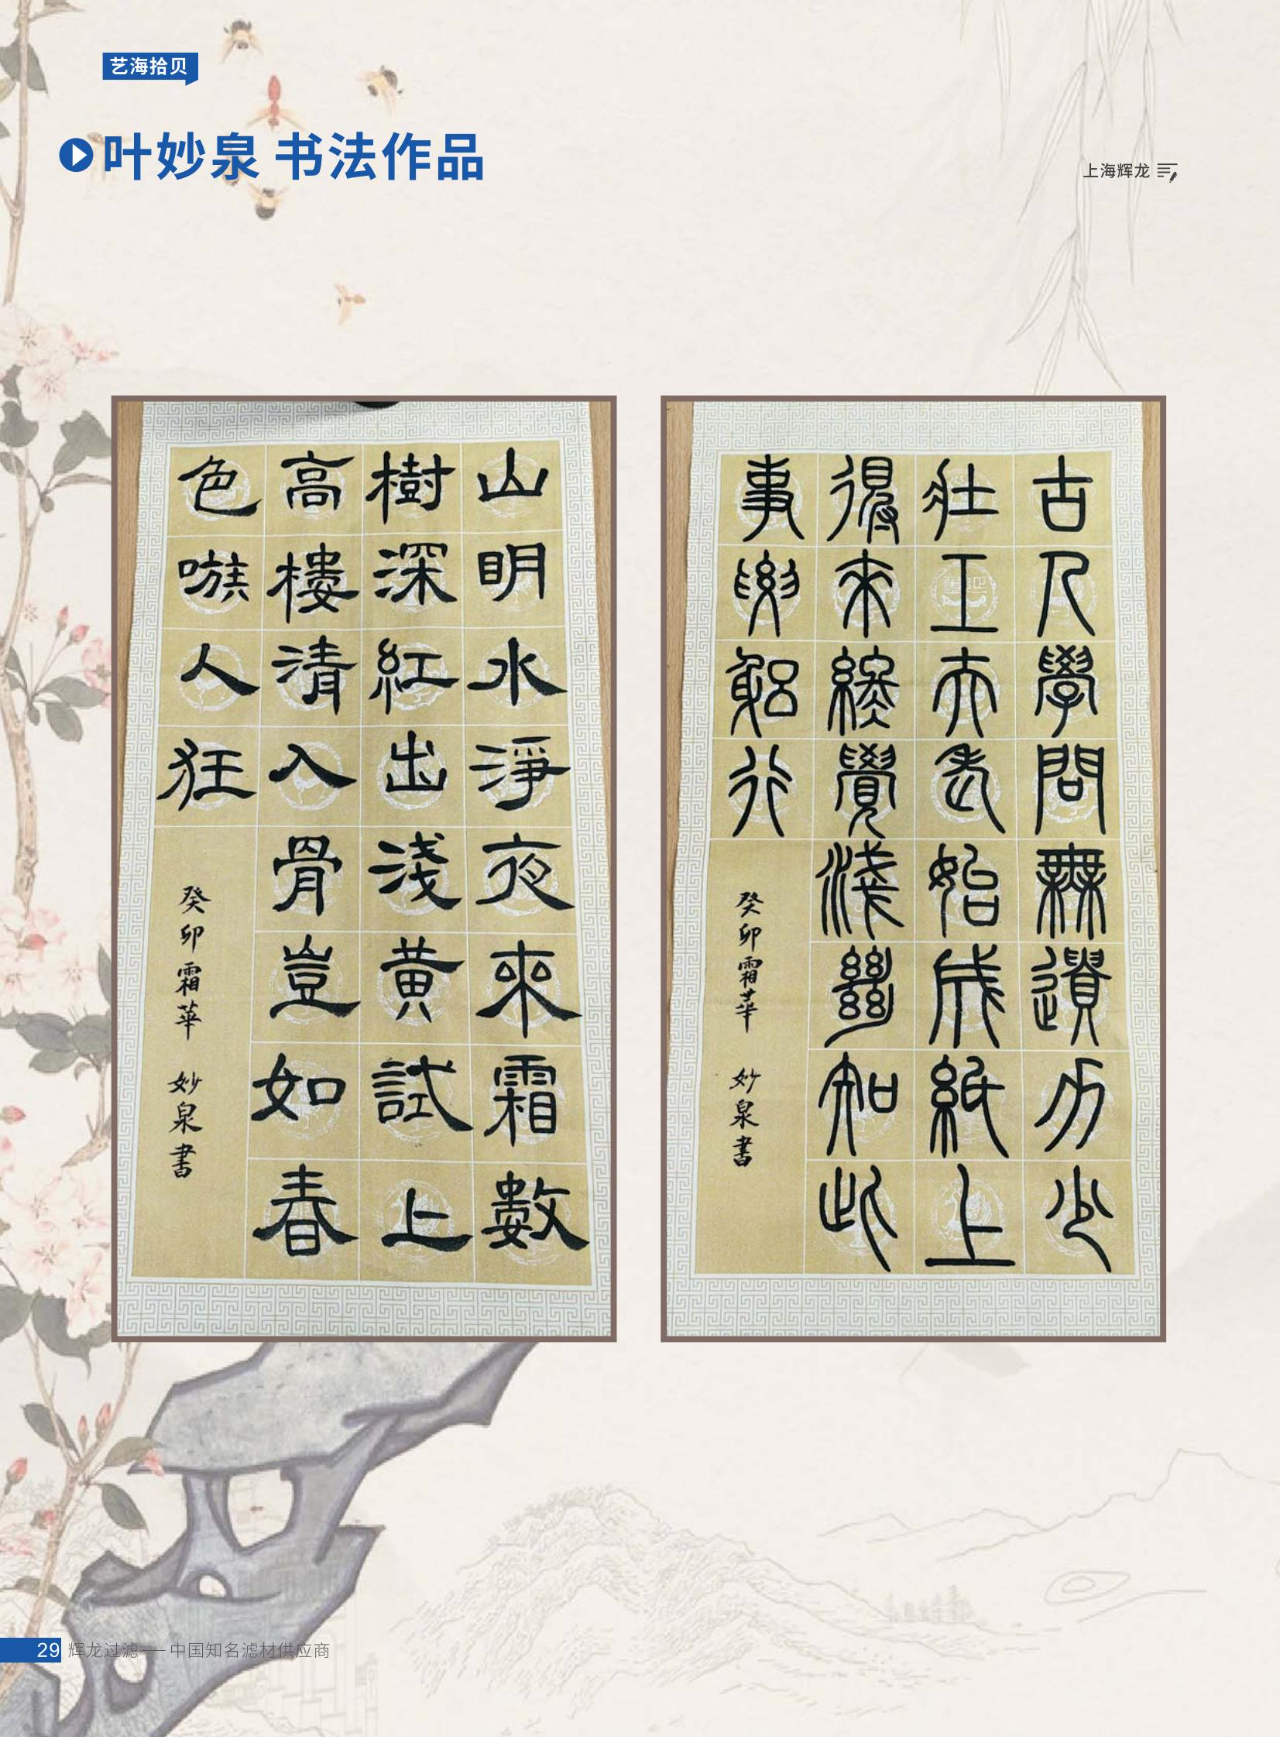 艺海拾贝
叶妙泉 书法作品
上海辉龙
山明水淨夜來霜數
樹深紅出淺黄試上
高樓清入骨豈如春
色嗾人狂
癸卯霜華 妙泉書
古人學問無遺力少
壯工夫老始成紙上
得來終覺淺絕知此
事要躬行
癸卯霜華 妙泉書
29 辉龙过滤——中国知名滤材供应商